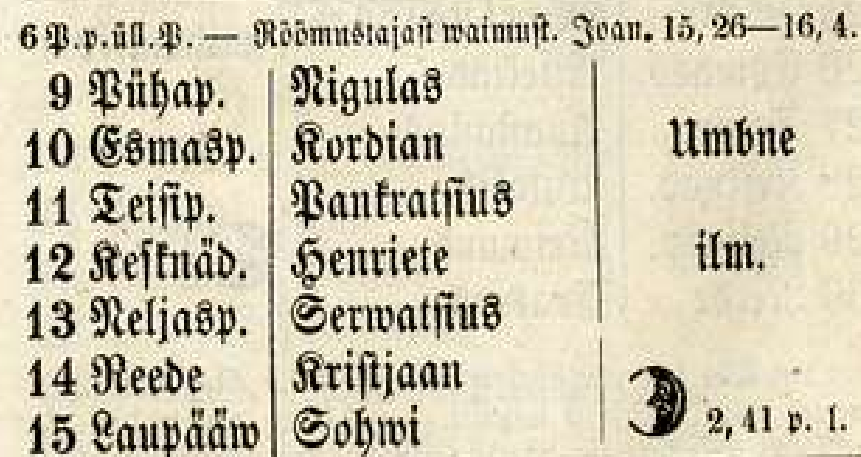 6 P.p.üll.P. — Röömustajast waimust. Joan. 15, 26—16, 4.
9 Pühap. Nigulas
10 Esmasp. Kordian Umbne
11 Teisip. Pankratsius
12 Kesknäd. Henriete ilm.
13 Neljasp. Serwatsius
14 Reede Kristjaan
15 Laupääw Sohwi 2, 41 p. l.